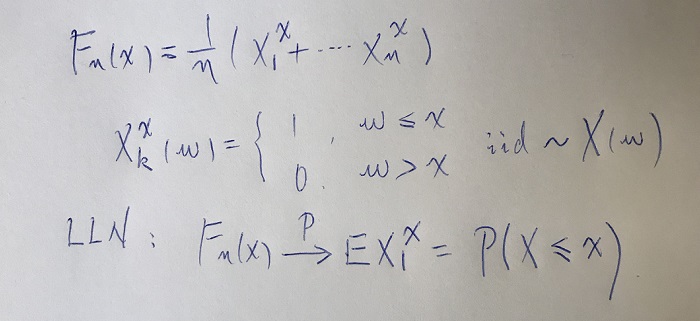 Fₙ(x) = 1/n (X₁ˣ + ··· Xₙˣ)
Xₖˣ(w) = { 1, w ≤ x ; 0, w > x iid ~ X(w)
LLN: Fₙ(x) →ᴾ EX₁ˣ = P(X ≤ x)